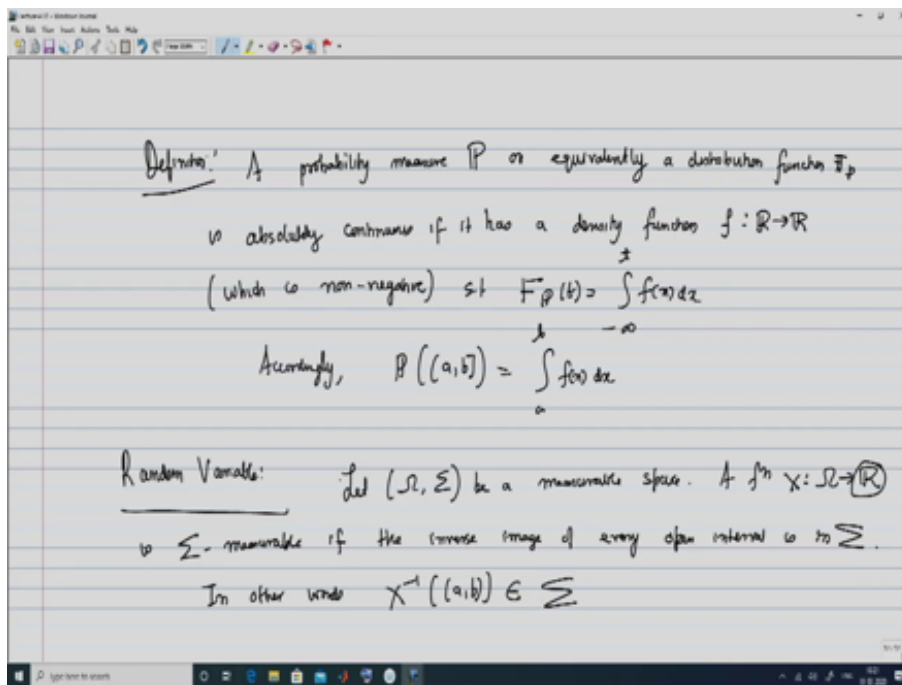 File Edit View Insert Actions Tools Help
Definition: A probability measure ℙ or equivalently a distribution function F_ℙ
is absolutely continuous if it has a density function f : ℝ→ℝ
(which is non-negative) st F_ℙ(t) = ∫_{-∞}^{t} f(x) dx
Accordingly, ℙ((a,b]) = ∫_a^b f(x) dx
Random Variable: Let (Ω, Σ) be a measurable space. A fⁿ X: Ω→ℝ
is Σ-measurable if the inverse image of every open interval is in Σ.
In other words X⁻¹((a,b)) ∈ Σ
Type here to search